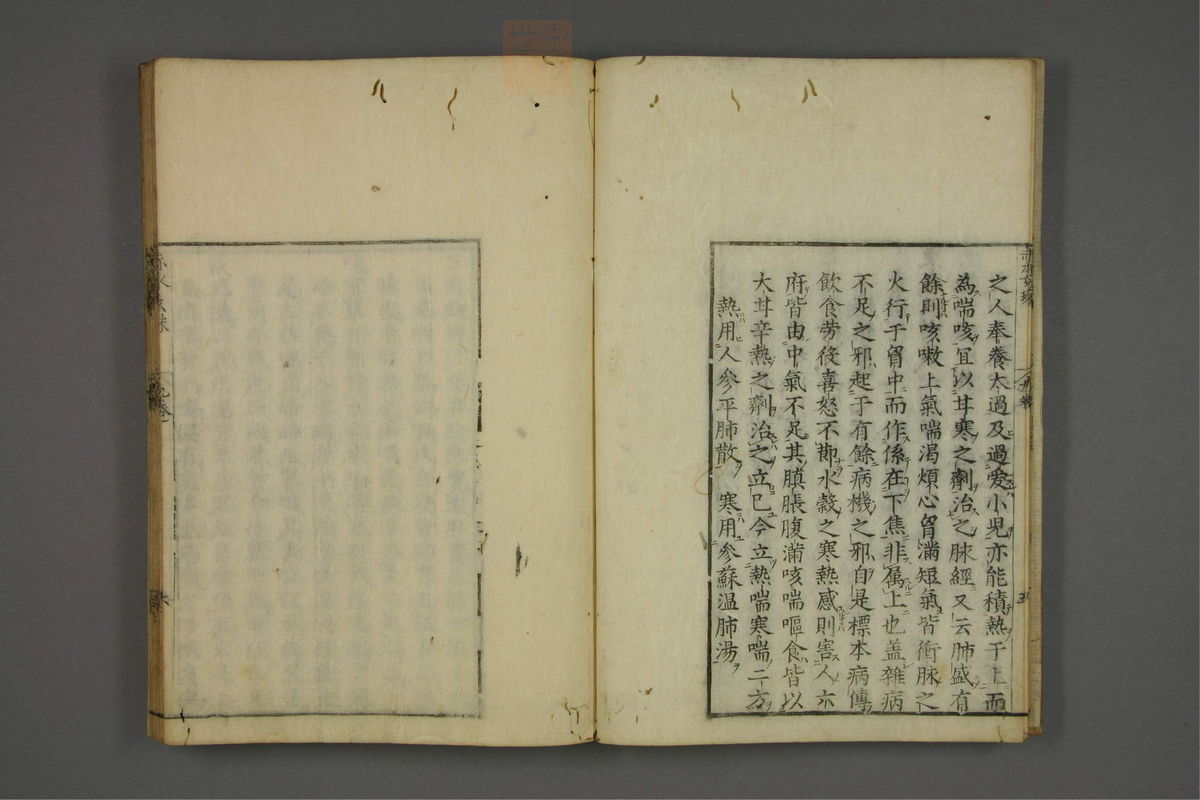 之人奉養太過及過愛小児亦能積熱于上而
為喘咳宜以甘寒之劑治之脉經又云肺盛有
餘則咳嗽上氣喘渴煩心胷滿短氣皆衝脉之
火行于胷中而作係在下焦非属上也盖雜病
不足之邪起于有餘病機之邪自是標本病傳
飲食劳役喜怒不節水穀之寒熱感則害人六
府皆由中氣不足其䐜脹腹滿咳喘嘔食皆以
大甘辛熱之劑治之立已今立熱喘寒喘二方
熱用人參平肺散 寒用參蘇温肺湯